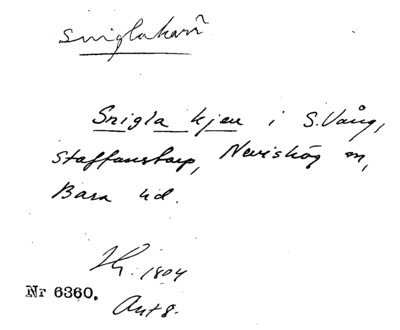 Sniglakärr
Snigla kjen i S.Vång,
Staffanstorp, Nevishög m,
Bara hd.
1804
Nr 6360.
Ant 8.